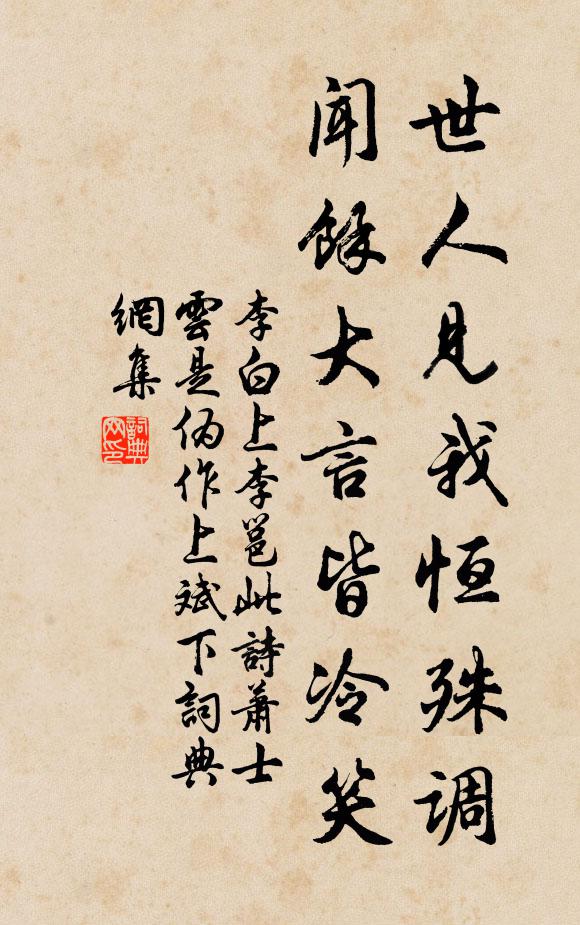 世人見我恒殊调
闻餘大言皆冷笑
李白上李邕此詩蕭士
雲是偽作上斌下詞典
網集
詞典网印